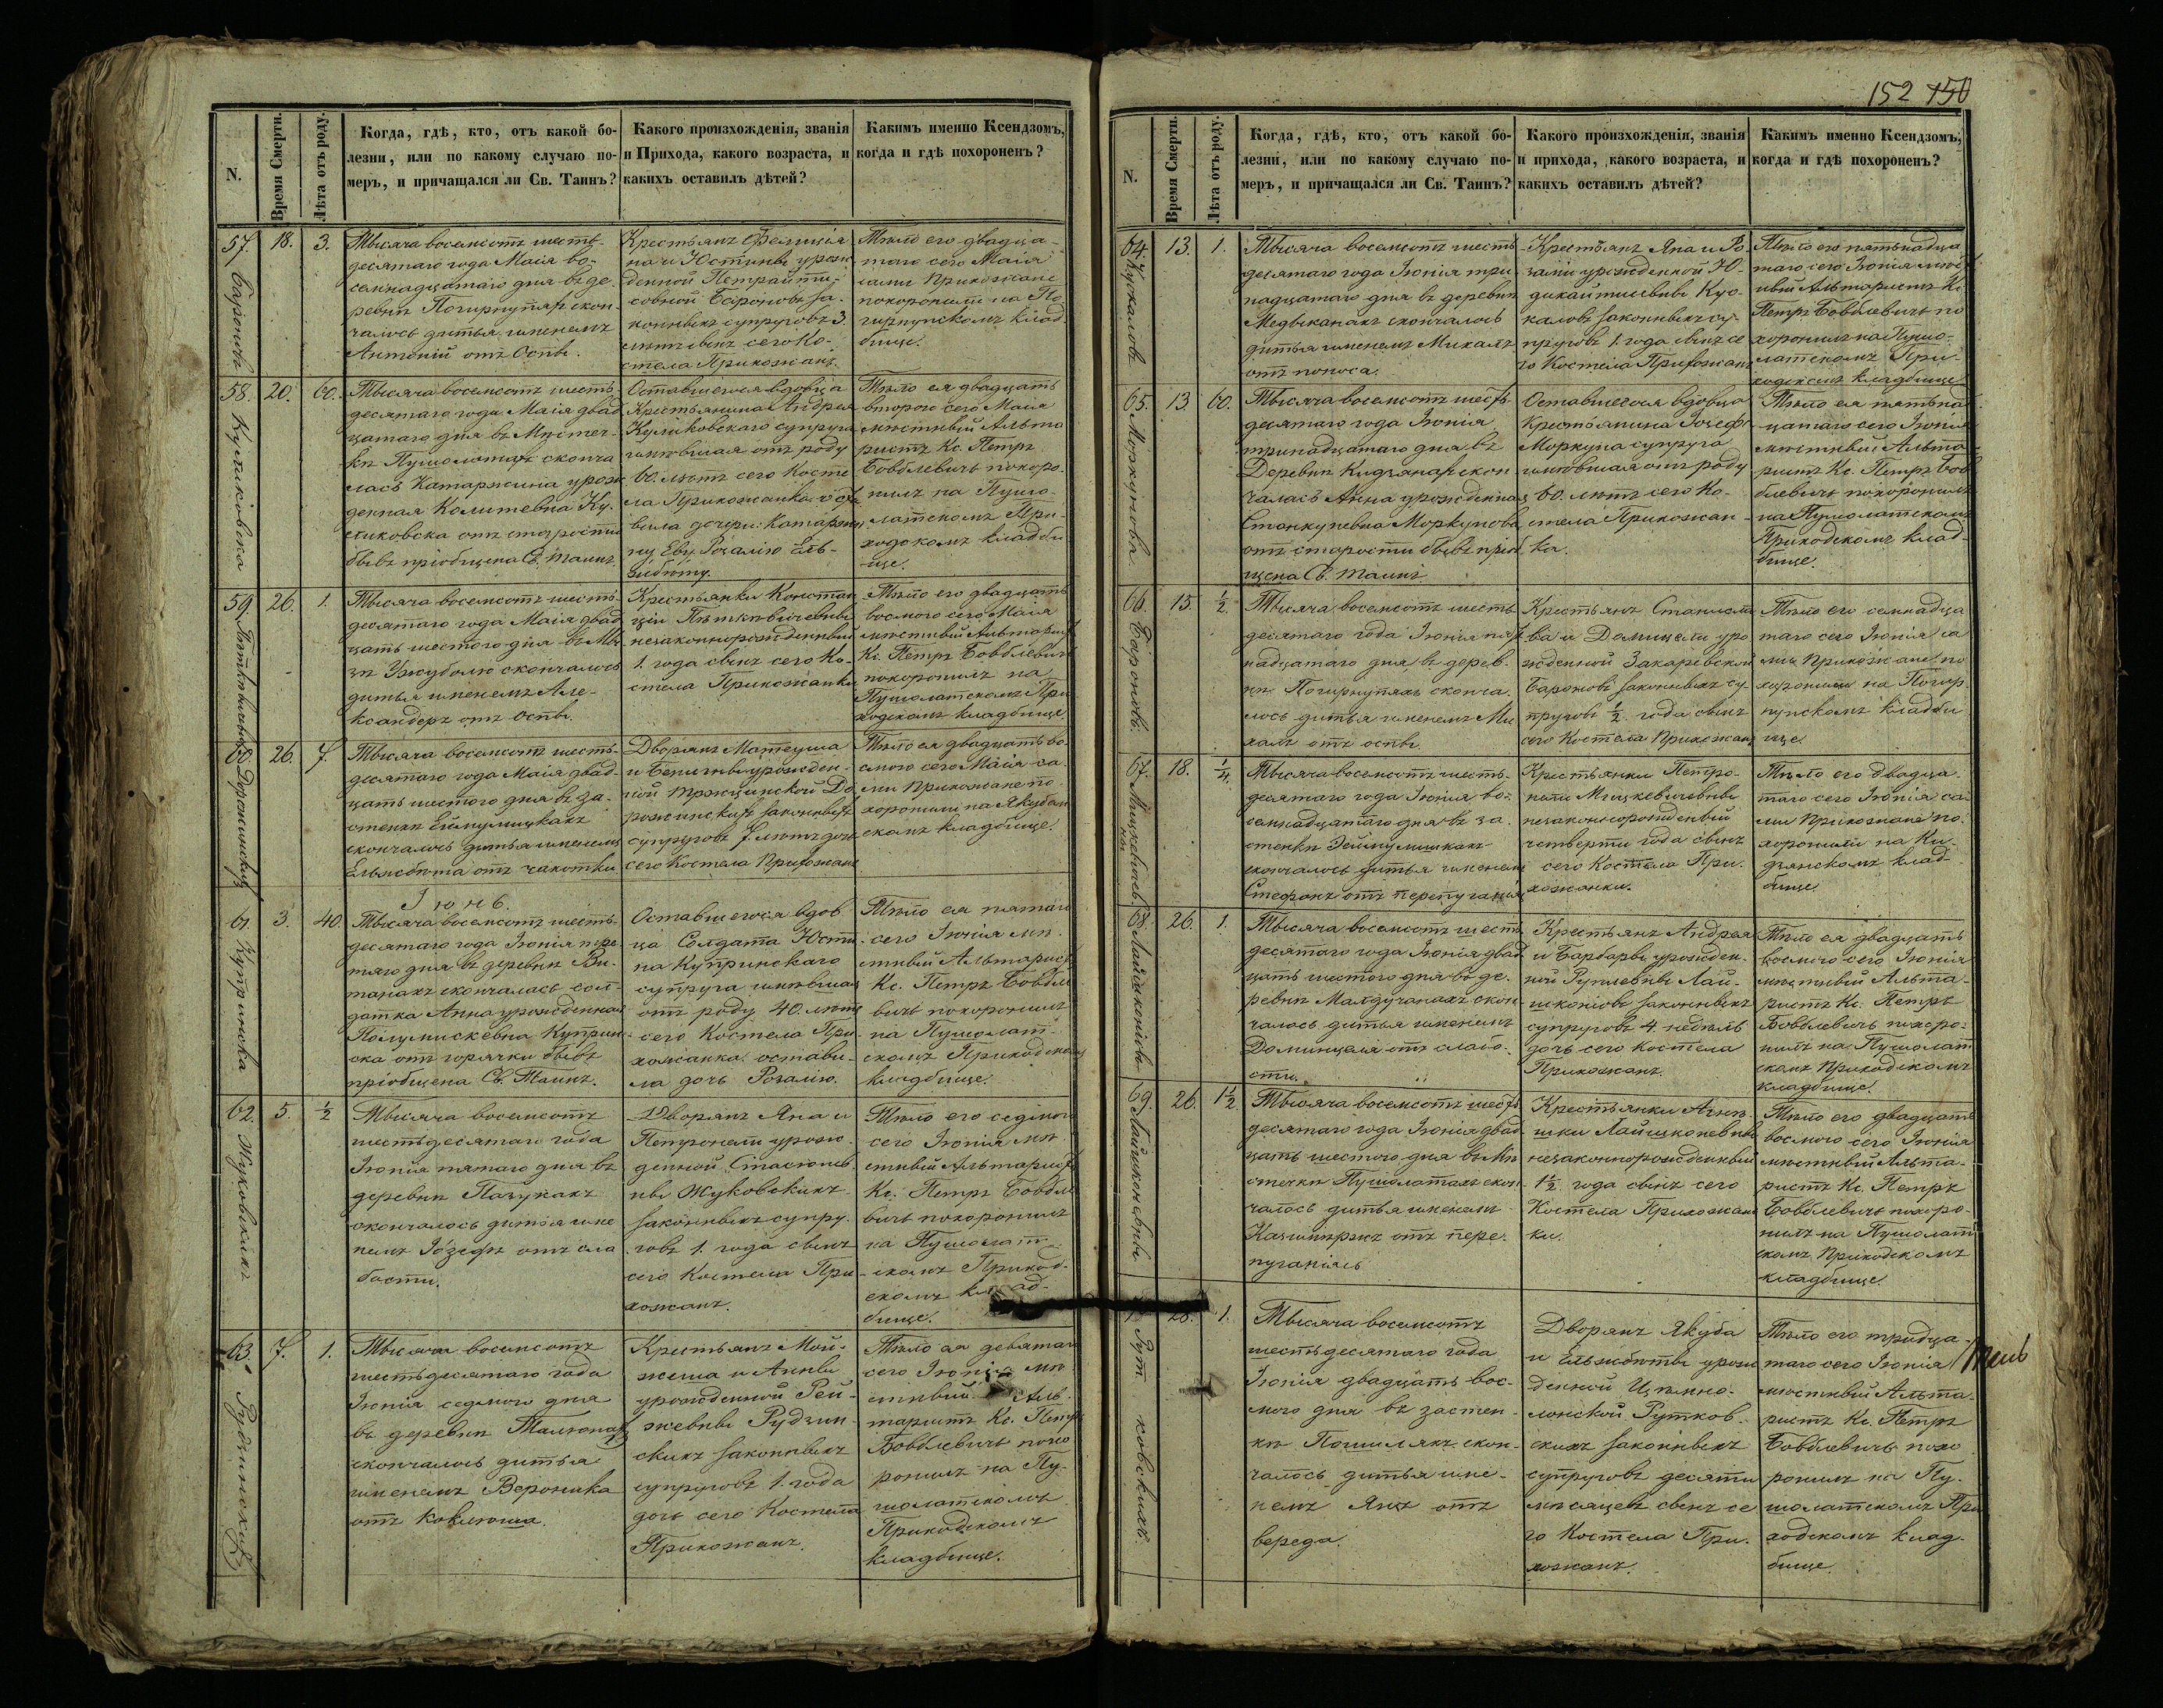 152 150
N.
Время Смерти.
Лѣта отъ роду.
Когда, гдѣ, кто, отъ какой бо-
лезни, или по какому случаю по-
меръ, и причащался ли Св. Таинъ?
Какого произхожденія, званія
и Прихода, какого возраста, и
какихъ оставилъ дѣтей?
Какимъ именно Ксендзомъ,
когда и гдѣ похороненъ?
57. 18. 3.
Бароновъ
Тысяча восемсотъ шесть-
десятаго года Маія во-
семнадцатаго дня въ де-
ревнѣ скон-
чалось дитья именемъ
Антоній отъ Оспы.
Крестьянъ Фелиція
на и Юстины урож-
денной
Бароновъ за-
конныхъ супруговъ 3
лѣтъ сынъ сего Ко-
стела Прихожанъ.
Тѣло его двадца-
таго сего Маія
сами Прихожане
похоронили на По-
гирнупскомъ клад
бище.
58. 20. 60.
Куликовска
Тысяча восемсотъ шесть
десятаго года Маія двад
цатаго дня въ Мѣстеч-
кѣ Пушолатахъ сконча
лась Катаржина урож
денная Ку-
ликовска отъ старости
бывъ пріобщена Св. Таинъ.
Оставшегося вдовца
Крестьянина Андрея
Куликовскаго супруга
имѣвшая отъ роду
60. лѣтъ сего Косте
ла Прихожанка оста
вила дочери: Катаржи
ну Еву Розалію Ель-
збѣту.
Тѣло ея двадцать
второго сего Маія
мѣстный Альта
ристъ Кс. Петръ
Бовблевичъ похоро-
нилъ на Пушо-
латскомъ При-
ходскомъ кладби
ще.
59. 26. 1.
Тысяча восемсотъ шесть-
десятаго года Маія двад
цать шестого дня въ
скончалось
дитья именемъ Але-
ксандеръ отъ Оспы.
Крестьянки Констан
ціи
незаконнорожденный
1. года сынъ сего Ко-
стела Прихожанки
Тѣло его двадцать
восмого сего Маія
мѣстный Альтарист
Кс. Петръ Бовблевичъ
похоронилъ на
Пушолатскомъ При
ходскомъ кладбище
60. 26. 7.
Тысяча восемсотъ шесть-
десятаго года Маія двад-
цать шестого дня въ за-
стенкѣ
скончалось дитья именемъ
Ельжбѣта отъ чахотки
Дворянъ Матеуша
и Бенигны урожден-
ной До
законныхъ
супруговъ 7 лѣтъ дочь
сего Костела Прихожанъ
Тѣло ея двадцать во-
смого сего Маія са-
ми Прихожане по
хоронили на
скомъ кладбище.
Іюнь.
61. 3. 40
Купринска
Тысяча восемсотъ шесть-
десятаго года Іюнія тре
тяго дня въ деревнѣ Ви-
танахъ скончалась сол-
датка Анна урожденная
Куприн
ска отъ горячки бывъ
пріобщена Св. Таинъ.
Оставшегося вдов
ца Солдата Юсти
на Купринскаго
супруга имѣвшая
отъ роду 40. лѣтъ
сего Костела При
хожанка. остави-
ла дочь Розалію.
Тѣло ея пятаго
сего Іюнія мѣ-
стный Альтарист
Кс. Петръ Бовбле
вичъ похоронилъ
на Пушолат-
скомъ Приходскомъ
кладбище.
62. 5. ½
Жуковскихъ
Тысяча восемсотъ
шестьдесятаго года
Іюнія пятаго дня въ
деревнѣ
скончалось дитья име
немъ Іозефъ отъ сла
бости.
Дворянъ Яна и
Петронели урож-
денной
Жуковскихъ
законныхъ супру-
говъ 1. года сынъ
сего Костела При
хожанъ.
Тѣло его седмого
сего Іюнія мѣ-
стный Альтарист
Кс. Петръ Бовбле
вичъ похоронилъ
на Пушолат-
скомъ Приход-
скомъ клад-
бище.
63. 7. 1.
Рудзинскихъ
Тысяча восемсотъ
шестьдесятаго года
Іюнія седмого дня
въ деревнѣ
скончалось дитья
именемъ Вероника
отъ Коклюша.
Крестьянъ Мой-
жеша и Анны
урожденной Рей-
жевны Рудзин-
скихъ законныхъ
супруговъ 1. года
дочь сего Костела
Прихожанъ.
Тѣло ея девятаго
сего Іюнія мѣ-
стный Аль-
таристъ Кс. Петръ
Бовблевичъ похо
ронилъ на Пу-
шолатскомъ
Приходскомъ
кладбище.
N.
Время Смерти.
Лѣта отъ роду.
Когда, гдѣ, кто, отъ какой бо-
лезни, или по какому случаю по-
меръ, и причащался ли Св. Таинъ?
Какого произхожденія, званія
и прихода, какого возраста, и
какихъ оставилъ дѣтей?
Какимъ именно Ксендзомъ,
когда и гдѣ похороненъ?
64 13. 1.
Кускаловъ
Тысяча восемсотъ шесть
десятаго года Іюнія три
надцатаго дня въ деревнѣ
скончалось
дитья именемъ Михалъ
отъ поноса.
Крестьянъ Яна и Ро
заліи урожденной Ю-
Кус-
каловъ законныхъ су-
пруговъ 1. года сынъ се
го Костела Прихожанъ
Тѣло его пятьнадца
таго сего Іюнія мѣст
ный Альтаристъ Кс.
Петръ Бовблевичъ по
хоронилъ на Пушо-
латскомъ При-
ходскомъ кладбище
65. 13. 60.
Моркунова
Тысяча восемсотъ шесть
десятаго года Іюнія
тринадцатаго дня въ
Деревнѣ скон
чалась Анна урожденная
Станкуневна Моркунова
отъ старости бывъ пріоб
щена Св. Таинъ
Оставшегося вдовца
Крестьянина Іозефа
Моркуна супруга
имѣвшая отъ роду
60. лѣтъ сего Ко-
стела Прихожан-
ка.
Тѣло ея пятьнад-
цатаго сего Іюнія
мѣстный Альта
ристъ Кс. Петръ Бов
блевичъ похоронилъ
на Пушолатскомъ
Приходскомъ клад-
бище.
66. 15. ½
Бароновъ.
Тысяча восемсотъ шесть
десятаго года Іюнія пят
надцатаго дня въ дерев-
нѣ сконча-
лось дитья именемъ Ми
халъ отъ оспы
Крестьянъ Станисла
ва и Домицели уро
жденной Захаревской
Бароновъ законныхъ су
пруговъ ½ года сынъ
сего Костела Прихожанъ
Тѣло его семнадца
таго сего Іюнія са
ми Прихожане по
хоронили на Погир-
нупскомъ кладби
ще.
67. 18. ¼
Мицкевичовъ
Тысяча восемсотъ шесть-
десятаго года Іюнія во-
семнадцатаго дня въ за-
стенкѣ
скончалось дитья именемъ
Стефанъ отъ перепуганія
Крестьянки Петро-
нели Мицкевичевны
незаконнорожденный
четверти года сынъ
сего Костела При-
хожанки.
Тѣло его двадца-
таго сего Іюнія са-
ми Прихожане по-
хоронили на Ки-
дзянскомъ клад
бище
68. 26. 1.
Лайшконісовъ
Тысяча восемсотъ шесть
десятаго года Іюнія двад
цать шестого дня въ де-
ревнѣ скон
чалось дитья именемъ
Доминцеля отъ слабо-
сти.
Крестьянъ Андрея
и Барбары урожден-
ной Лай-
шконісовъ законныхъ
супруговъ 4. недѣль
дочь сего Костела
Прихожанъ.
Тѣло ея двадцать
восмого сего Іюнія
мѣстный Альта-
ристъ Кс. Петръ
Бовблевичъ похоро-
нилъ на Пушолат
скомъ Приходскомъ
кладбище.
69. 26. 1½
Лайшконевны
Тысяча восемсотъ шесть
десятаго года Іюнія двад
цать шестого дня въ Мѣ
стечкѣ Пушолатахъ скон
чалось дитья именемъ
Казимиръ отъ пере-
пуганіясь
Крестьянки Агнѣ-
шки Лайшконевны
незаконнорожденный
1½ года сынъ сего
Костела Прихожан
ки.
Тѣло его двадцать
восмого сего Іюнія
мѣстный Альта-
ристъ Кс. Петръ
Бовблевичъ похоро-
нилъ на Пушолат
скомъ Приходскомъ
кладбище.
28. 1.
Рутковскихъ
Тысяча восемсотъ
шестьдесятаго года
Іюнія двадцать вос-
мого дня въ застен-
кѣ скон-
чалось дитья име-
немъ Янъ отъ
вереда.
Дворянъ Якуба
и Ельжбѣты урож
денной
Рутков-
скихъ законныхъ
супруговъ десяти
мѣсяцевъ сынъ се
го Костела При-
хожанъ.
Тѣло его тридца-
таго сего Іюнія
мѣстный Альта-
ристъ Кс. Петръ
Бовблевичъ похо
ронилъ на Пу-
шолатскомъ При
ходскомъ клад-
бище.